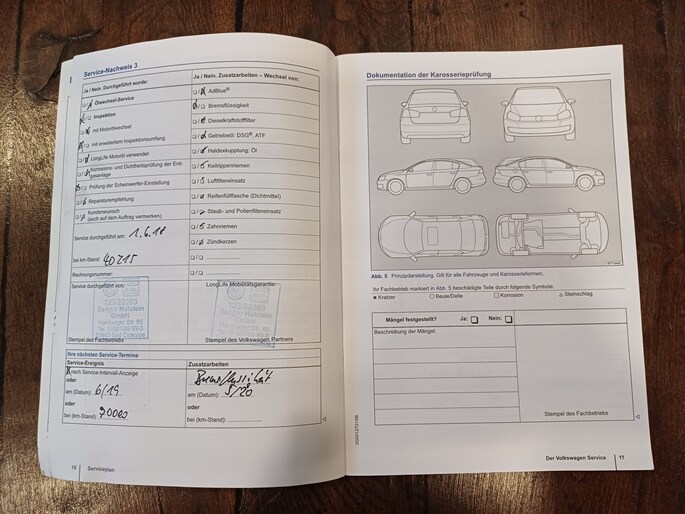 Service-Nachweis 3
Ja / Nein. Durchgeführt wurde:
Ölwechsel-Service
Inspektion
mit Motorölwechsel
mit erweitertem Inspektionsumfang
LongLife Motoröl verwendet
Korrosions- und Dichtheitsprüfung der Erdgasanlage
Prüfung der Scheinwerfer-Einstellung
Reparaturempfehlung
Kundenwunsch
(auch auf dem Auftrag vermerken)
Service durchgeführt am: 1.6.18
bei km-Stand: 40215
Rechnungsnummer:
Service durchgeführt von:
Stempel des Fachbetriebs
Ja / Nein. Zusatzarbeiten – Wechsel von:
AdBlue®
Bremsflüssigkeit
Dieselkraftstofffilter
Getriebeöl: DSG®, ATF
Haldexkupplung: Öl
Keilrippenriemen
Luftfiltereinsatz
Reifenfüllflasche (Dichtmittel)
Staub- und Pollenfiltereinsatz
Zahnriemen
Zündkerzen
LongLife Mobilitätsgarantie:
Stempel des Volkswagen Partners
Ihre nächsten Service-Termine
Service-Ereignis
nach Service-Intervall-Anzeige
oder
am (Datum): 6/19
oder
bei (km-Stand): 70000
Zusatzarbeiten
Bremsflüssigkeit
am (Datum): 5/20
oder
bei (km-Stand):
10 Serviceplan
Dokumentation der Karosserieprüfung
Abb. 5 Prinzipdarstellung. Gilt für alle Fahrzeuge und Karosserieformen.
Ihr Fachbetrieb markiert in Abb. 5 beschädigte Teile durch folgende Symbole:
Kratzer Beule/Delle Korrosion Steinschlag
Mängel festgestellt? Ja: Nein:
Beschreibung der Mängel:
Stempel des Fachbetriebs
Der Volkswagen Service 11